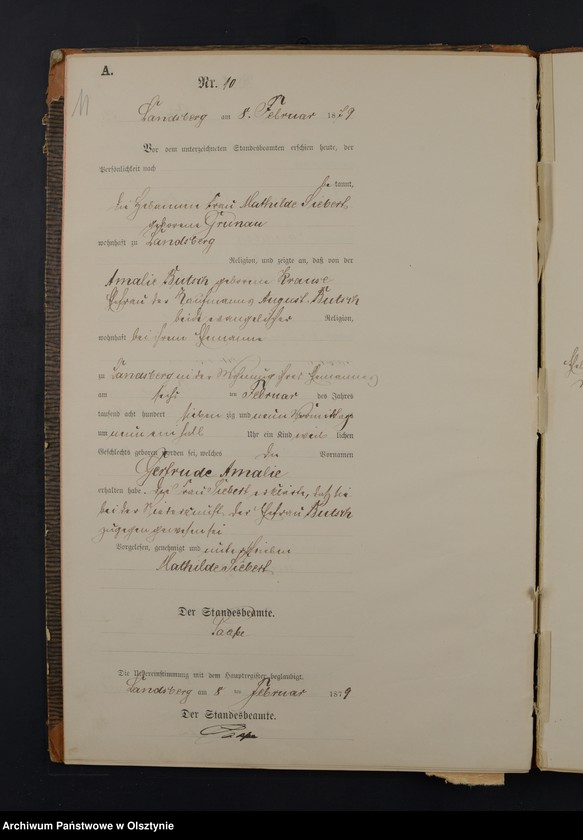 A.
11
Nr. 10
Landsberg am 8. Februar 1879
Vor dem unterzeichneten Standesbeamten erschien heute, der
Persönlichkeit nach
be kannt,
die Hebamme Frau Mathilde Siebert
geborene Grunau
wohnhaft zu Landsberg
Religion, und zeigte an, daß von der
Amalie Butsch geborene Krause
Ehefrau des Kaufmanns August Butsch
beide evangelischer Religion,
wohnhaft bei ihrem Ehemanne
zu Landsberg in der Wohnung ihres Ehemannes
am sechs ten Februar des Jahres
tausend acht hundert sieben zig und neun Vormittags
um neun ein halb Uhr ein Kind weib lichen
Geschlechts geboren worden sei, welches die Vornamen
Gertrude Amalie
erhalten habe. Die Frau Siebert erklärte, daß sie
bei der Niederkunft der Ehefrau Butsch
zugegen gewesen sei
Vorgelesen, genehmigt und unterschrieben
Mathilde Siebert
Der Standesbeamte.
Die Uebereinstimmung mit dem Hauptregister beglaubigt.
Landsberg am 8 ten Februar 1879
Der Standesbeamte.
Archiwum Państwowe w Olsztynie